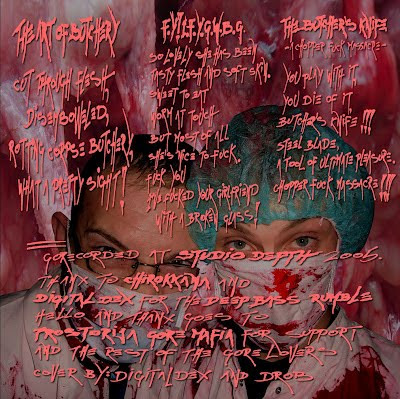 THE ART OF BUTCHERY
CUT THROUGH FLESH,
DISEMBOWELED,
ROTTING CORPSE BUTCHERY,
WHAT A PRETTY SIGHT!
SO LOVELY SHE HAS BEEN
TASTY FLESH AND SOFT SKIN.
SWEET TO EAT
WORM AT TOUCH
BUT MOST OF ALL
SHE'S NICE TO FUCK.
FUCK YOU
I FUCKED YOUR GIRLFRIEND
WITH A BROKEN GLASS!
THE BUTCHER'S KNIFE
-A CHOPPER FUCK MASSACRE-
YOU PLAY WITH IT
YOU DIE OF IT
BUTCHER'S KNIFE!!!
STEEL BLADE,
A TOOL OF ULTIMATE PLEASURE.
CHOPPER FUCK MASSACRE!!!
GORECORDED AT STUDIO DEPTH 2006.
THANX TO SHIROKKANA AND
DIGITALDEX FOR THE DEEP BASS RUMBLE
HELLO AND THANX GOES TO
PROSTORIJA GORE MAFIA FOR SUPPORT
AND THE REST OF THE GORE LOVERS
COVER BY: DIGITALDEX AND DROB